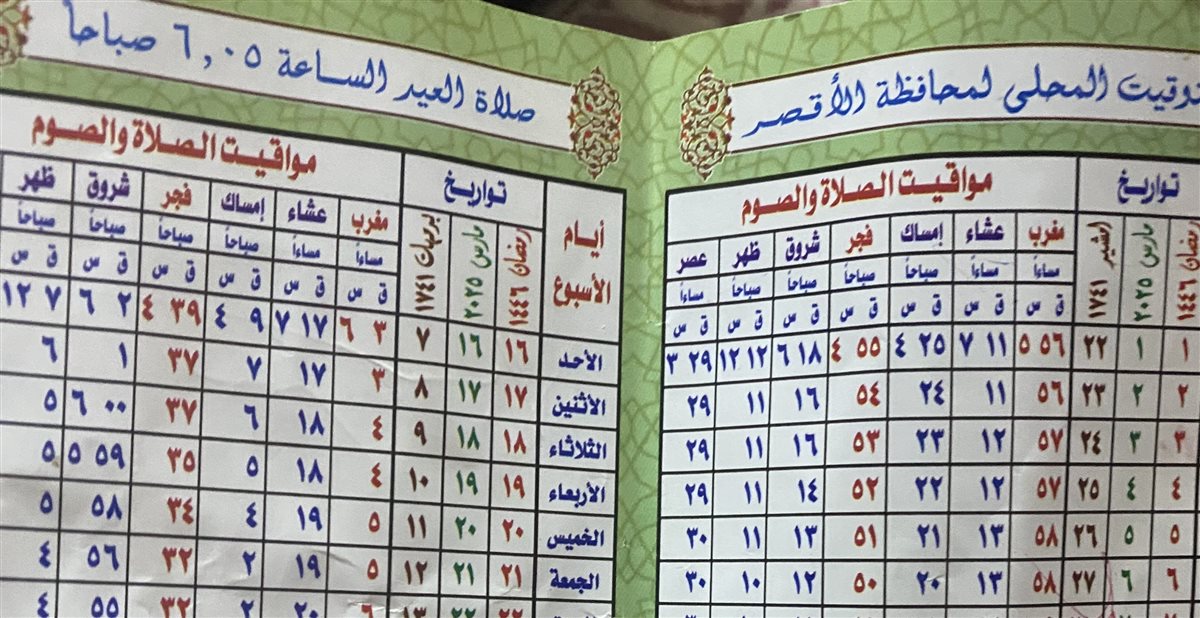 المحلى لمحافظة الأقصر
تواريخ مواقيت الصلاة والصوم
رمضان ١٤٤٦ مارس ٢٠٢٥ أمشير ١٧٤١ مغرب عشاء إمساك فجر شروق ظهر عصر
مساءاً مساءاً صباحاً صباحاً صباحاً صباحاً مساءاً
ق س ق س ق س ق س ق س ق س ق س
١ ١ ٢٢ ٥٦ ٥ ١١ ٧ ٢٥ ٤ ٥٥ ٤ ١٨ ٦ ١٢ ١٢ ٢٩ ٣
٢ ٢ ٢٣ ٥٦ ١١ ٢٤ ٥٤ ١٦ ١١ ٢٩
٣ ٣ ٢٤ ٥٧ ١٢ ٢٣ ٥٣ ١٦ ١١ ٢٩
٤ ٤ ٢٥ ٥٧ ١٢ ٢٢ ٥٢ ١٤ ١١ ٢٩
٥ ٥ ٢٦ ٥٨ ١٣ ٢١ ٥١ ١٣ ١١ ٣٠
٦ ٦ ٢٧ ٥٨ ١٣ ٢٠ ٥٠ ١٢ ١٠ ٣٠
صلاة العيد الساعة ٦,٠٥ صباحاً
أيام الأسبوع تواريخ مواقيت الصلاة والصوم
رمضان ١٤٤٦ مارس ٢٠٢٥ برمهات ١٧٤١ مغرب عشاء إمساك فجر شروق ظهر
مساءاً مساءاً صباحاً صباحاً صباحاً صباحاً
ق س ق س ق س ق س ق س ق س
الأحد ١٦ ١٦ ٧ ٣ ٦ ١٧ ٧ ٩ ٤ ٣٩ ٤ ٢ ٦ ٧ ١٢
الاثنين ١٧ ١٧ ٨ ٣ ١٧ ٧ ٣٧ ١ ٦
الثلاثاء ١٨ ١٨ ٩ ٤ ١٨ ٦ ٣٧ ٠٠ ٦ ٥
الأربعاء ١٩ ١٩ ١٠ ٤ ١٨ ٥ ٣٥ ٥٩ ٥ ٥
الخميس ٢٠ ٢٠ ١١ ٥ ١٩ ٤ ٣٤ ٥٨ ٥
الجمعة ٢١ ٢١ ١٢ ٥ ١٩ ٢ ٣٢ ٥٦ ٤
٢٢ ٢٢ ١٣ ٦ ٢٠ ٢ ٣٢ ٥٥ ٤